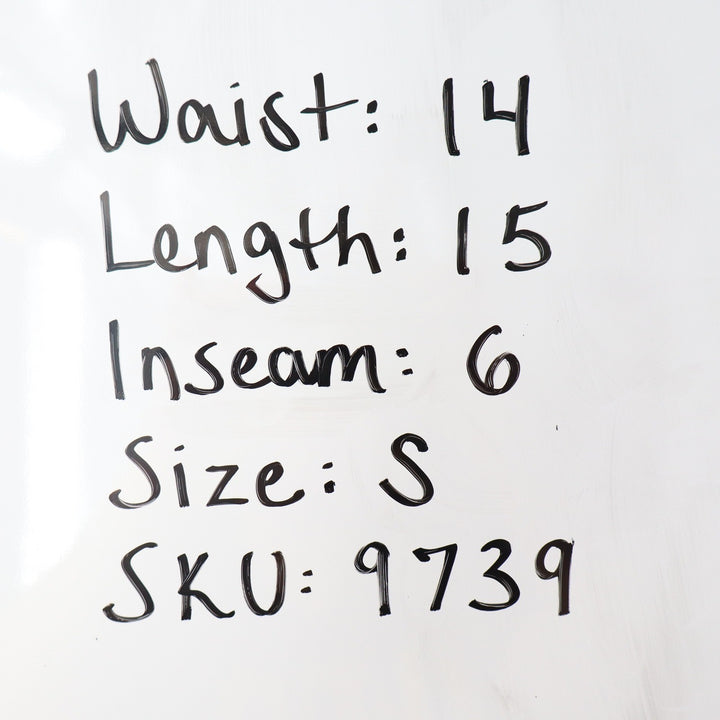 Waist: 14
Length: 15
Inseam: 6
Size: S
SKU: 9739